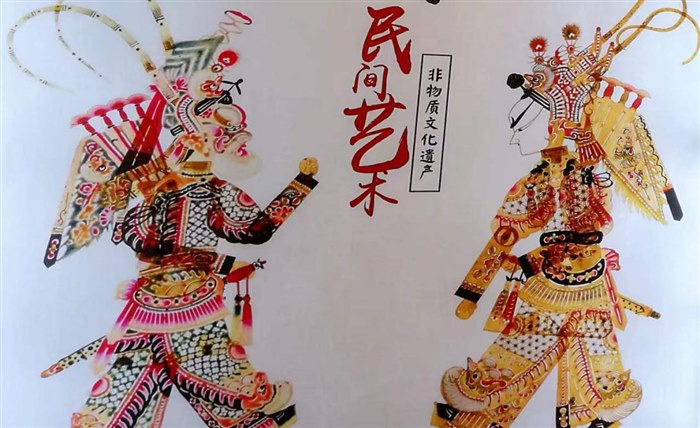 民间艺术
非物质文化遺产